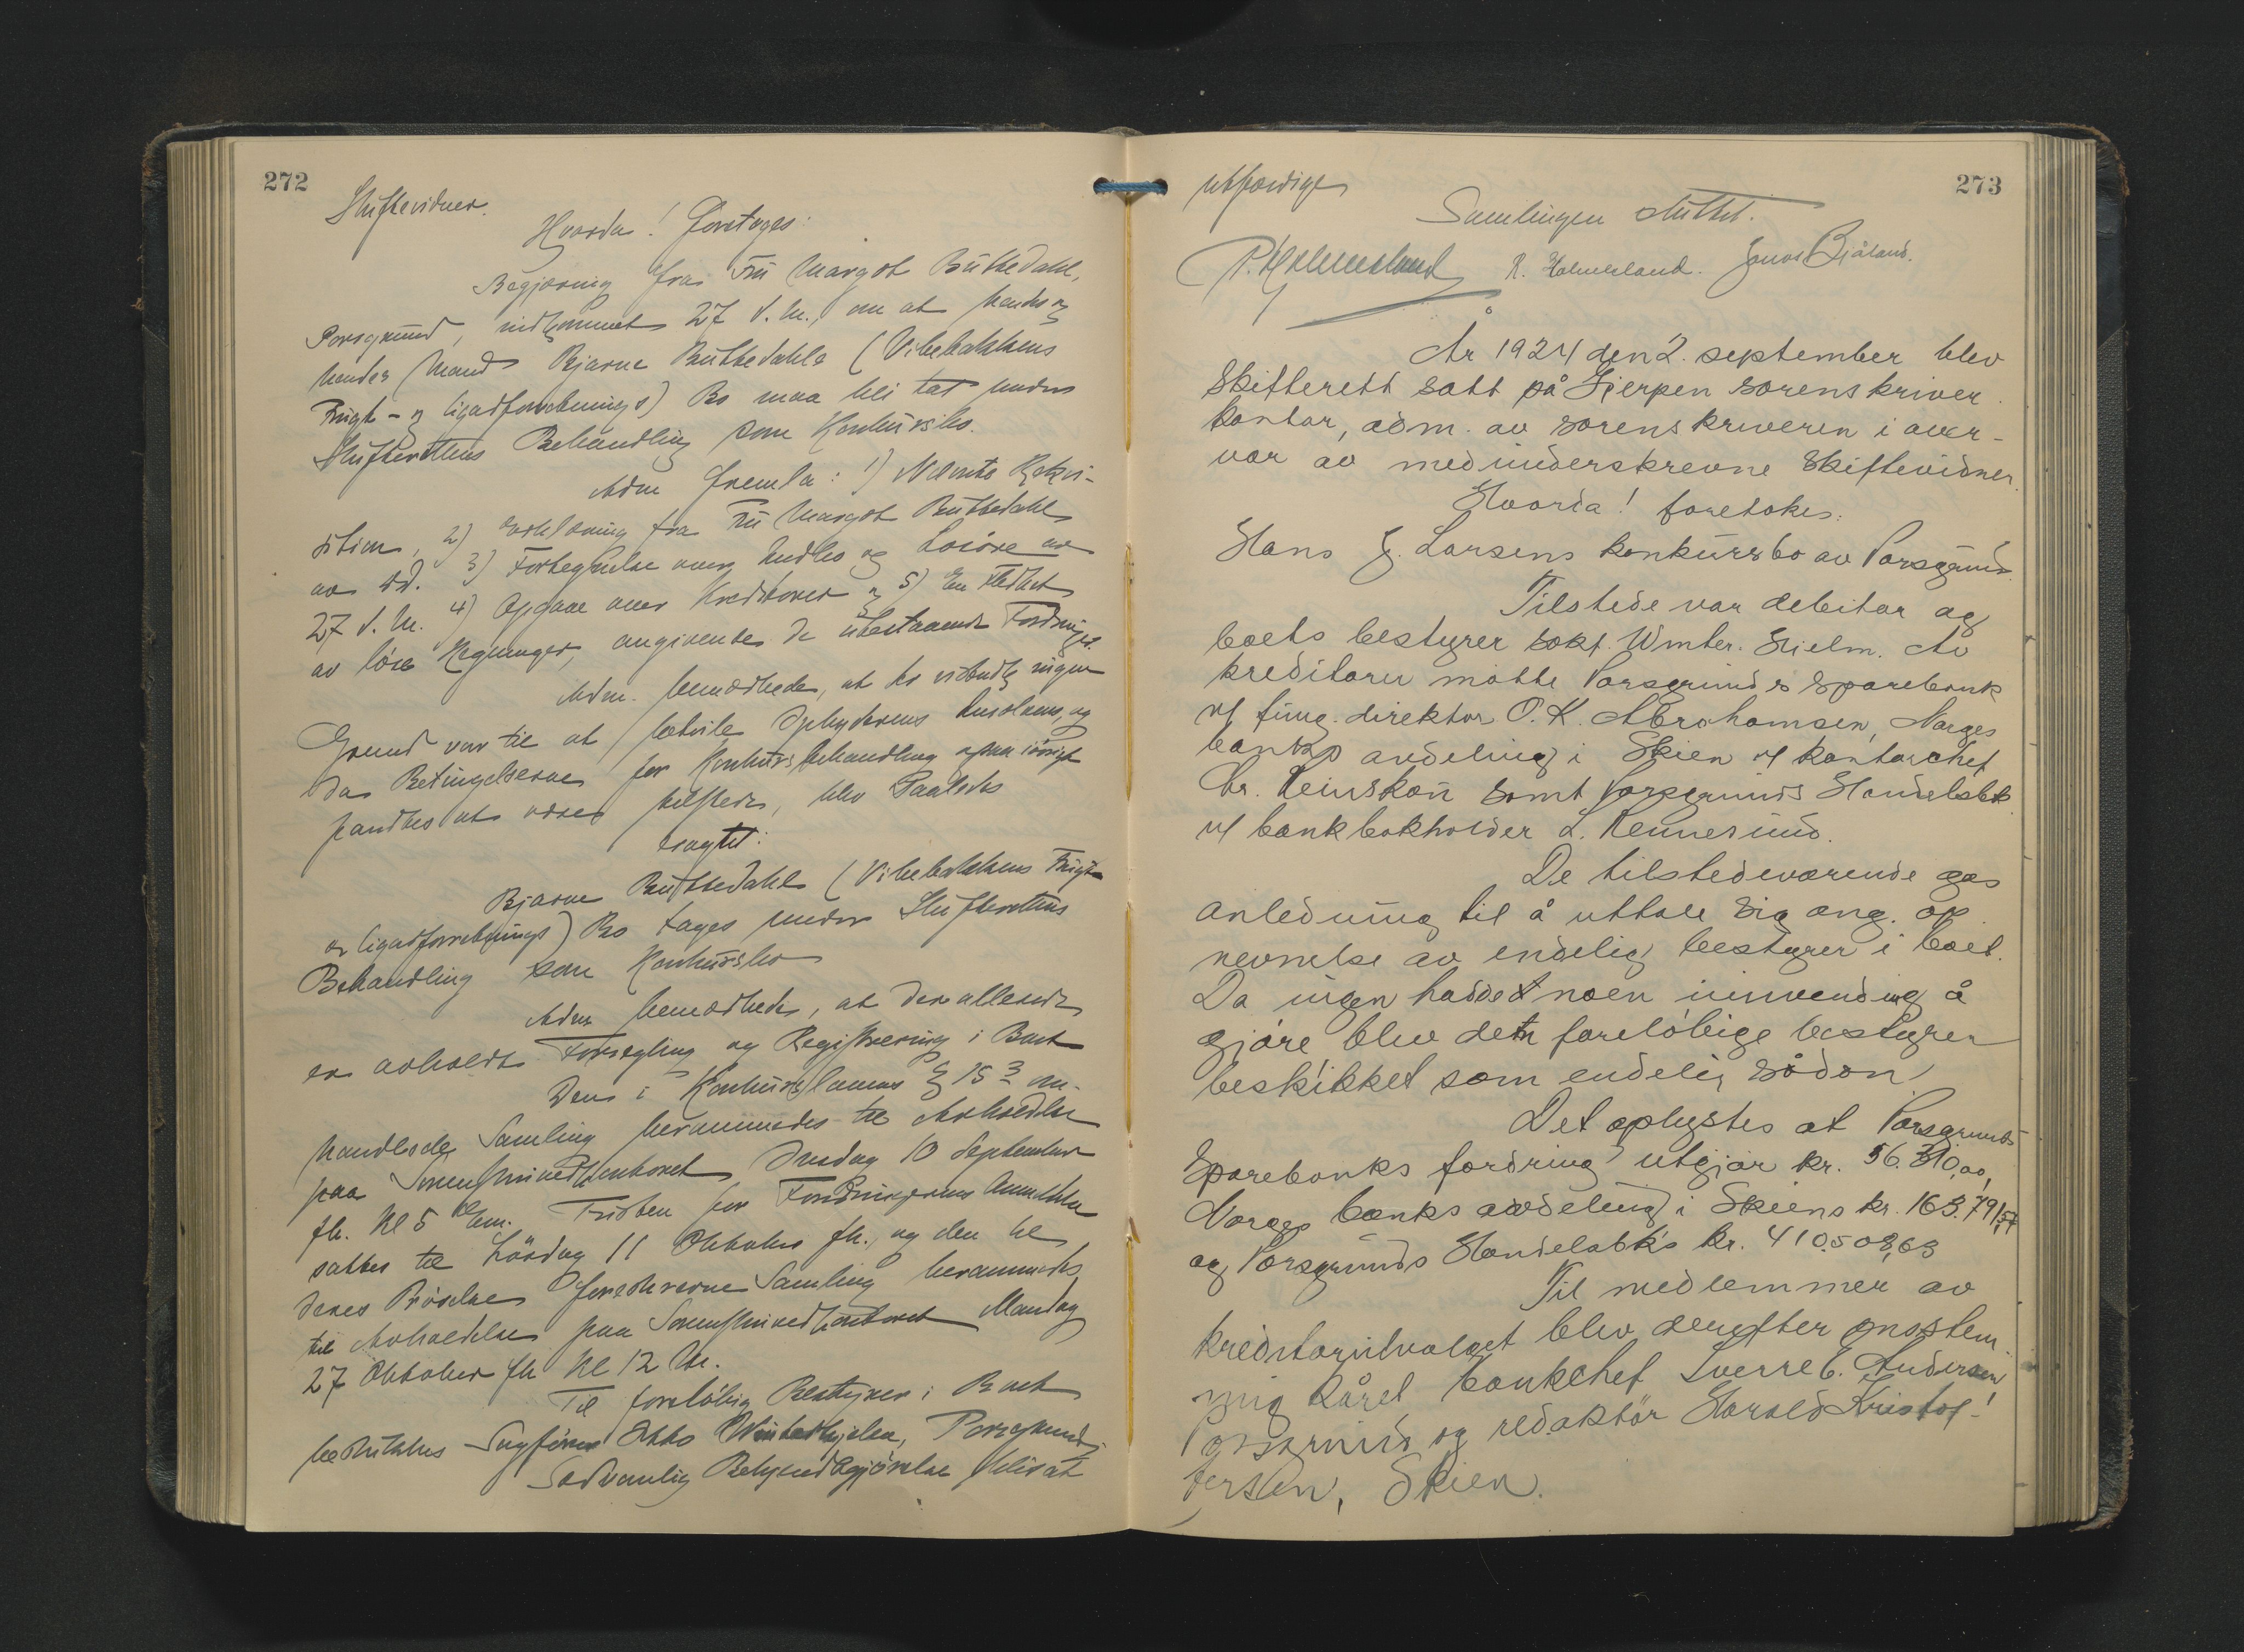 272
Skiftevidner.
Hvorda! Foretoges:
Begjæring fra Fru Margot Buttedahl,
Porsgrund, indkommet 27 d. M., om at hendes og
hendes Mand Bjarne Buttedahls (Vibebakkens
Frugt- og Cigarforretnings) Bo maa bli tat under
Skifterettens Behandling som Konkursbo.
Adm fremla: 1) Nævnte Rekvi-
sition, 2) Erklæring fra Fru Margot Buttedahl
av s.d. 3) Fortegnelse over Indbo og Løsøre av
27 d. M. 4) Opgave over Kreditorer og 5) En Pakket
av løse Regninger, angivende de utestaaende Fordringer.
Adm. bemærkede, at der ingen
Grund var til at betvile Skyldnerens Insolvens, og
da Betingelserne for Konkursbehandling ogsaa iøvrigt
fandtes at være tilstede, blev Saaledes
eragtet:
Bjarne Buttedahls (Vibebakkens Frugt-
og Cigarforretnings) Bo tages under Skifterettens
Behandling som Konkursbo
Adm bemærkede, at der allerede
er avholdt Forsegling og Registrering i Boet
Den i Konkurslovens § 15 3 om-
handlede Samling berammedes til Avholdelse
paa Sorenskriverkontoret Onsdag 10 September
fk. Kl 5 Em. Fristen for Fordringernes Anmeldelse
sattes til Lørdag 11 Oktober fk., og den til
deres Prøvelse foreskrevne Samling berammedes
til Avholdelse paa Sorenskriverkontoret Mandag
27 Oktober fk Kl 12 Md.
Til foreløbig Bestyrer i Boet
beskikkes Sagfører Otto Winterhjelm, Porsgrund
Sedvanlig Bekjendtgjørelse blir at
273
utfærdige
Samlingen sluttet.
P. Holmesland R. Holmesland. Jonas Bjåland.
År 1924 den 2. september blev
Skifterett satt på Gjerpen sorenskriver
kontor, adm. av sorenskriveren i over-
vær av medunderskrevne Skiftevidner.
Hvorda! foretokes:
Hans J. Larsens konkursbo av Porsgrund
Tilstede var debitor og
boets bestyrer sakf. Winter-Hjelm. Av
kreditorer møtte Porsgrunds Sparebank
v/ fung. direktør O. K. Abrahamsen, Norges
banks avdeling i Skien v/ kontorchef
Chr. Reinskou samt Porsgrunds Handelsbk
v/ bankbokholder L. Rennesund.
De tilstedeværende gas
anledning til å uttale sig ang. op
nevnelse av endelig bestyrer i boet.
Da ingen hadde noen innvending å
gjøre blev den foreløbige bestyrer
beskikket som endelig sådan
Det oplystes at Porsgrunds
Sparebanks fordring utgjør kr. 56.310,00,
Norges banks avdeling i Skiens kr. 163.791,57
og Porsgrunds Handelsbk's kr. 410.508,63
Til medlemmer av
kreditorutvalget blev derefter enstem
mig kåret bankchef Sverre C. Andersen
Porsgrund og redaktør Harald Kristof-
fersen, Skien.